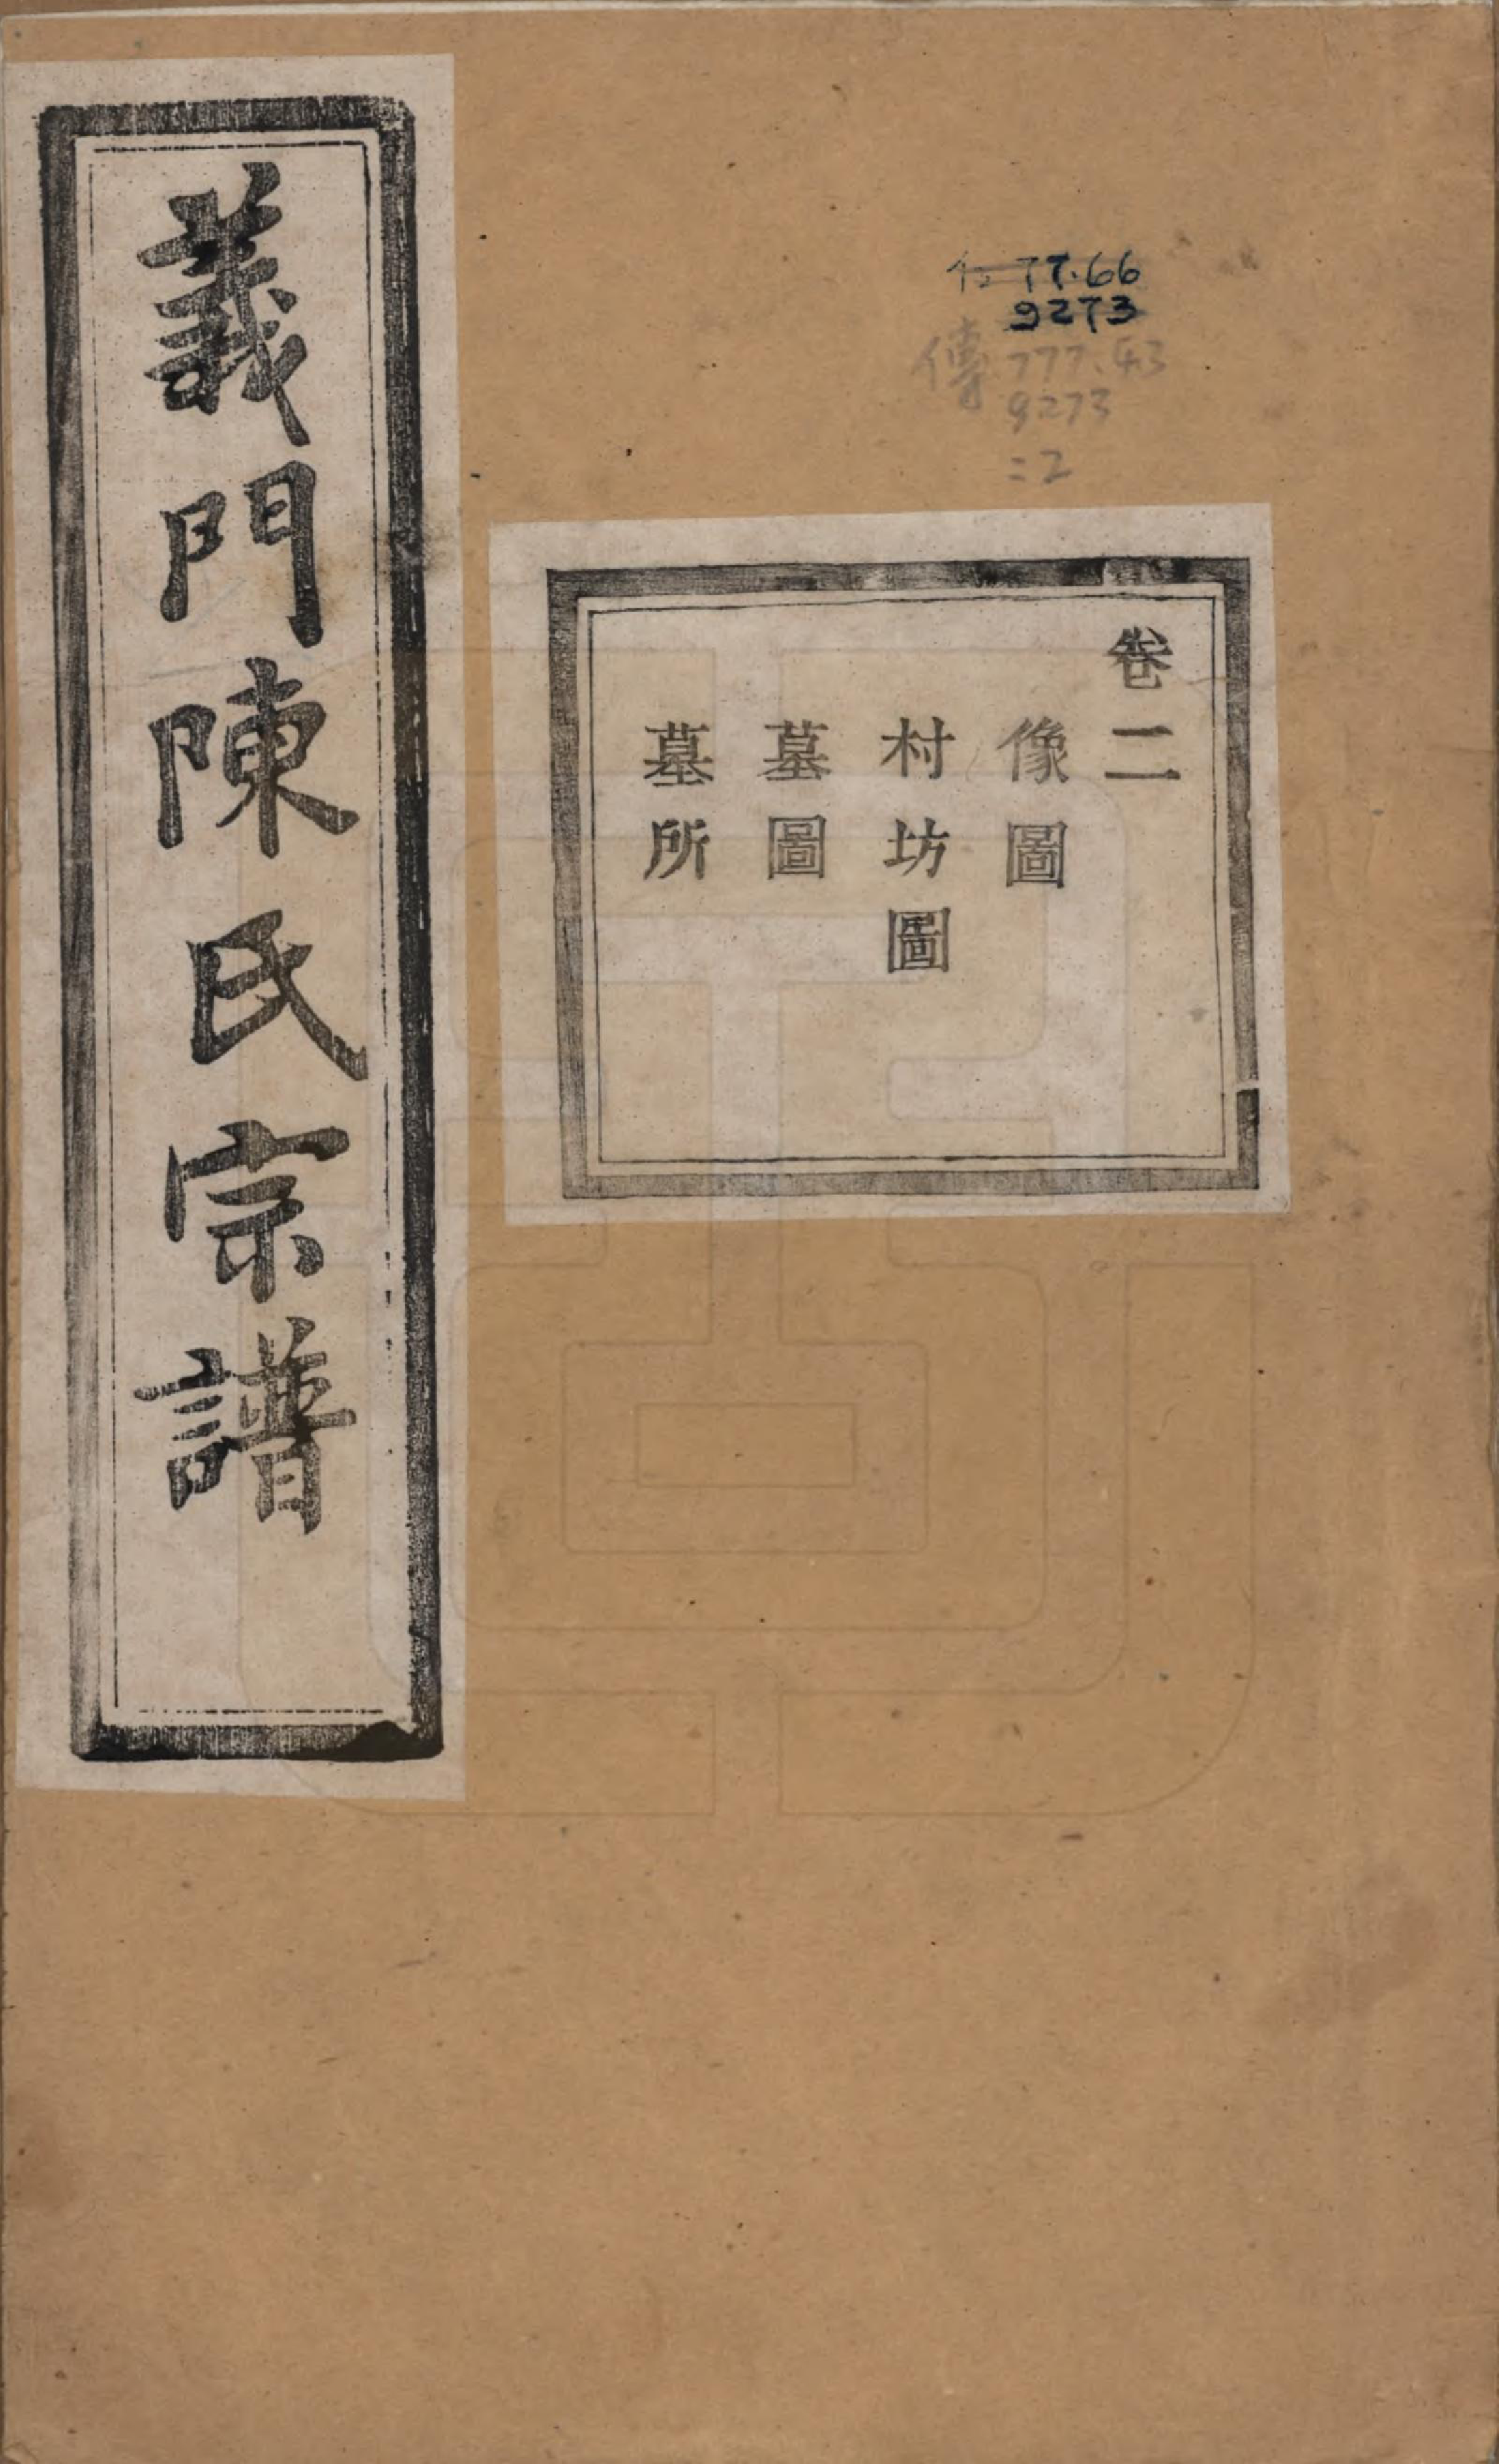 義門陳氏宗譜
77.66
9273
傳 777.43
9273
:2
卷二
像圖
村坊圖
墓圖
墓所